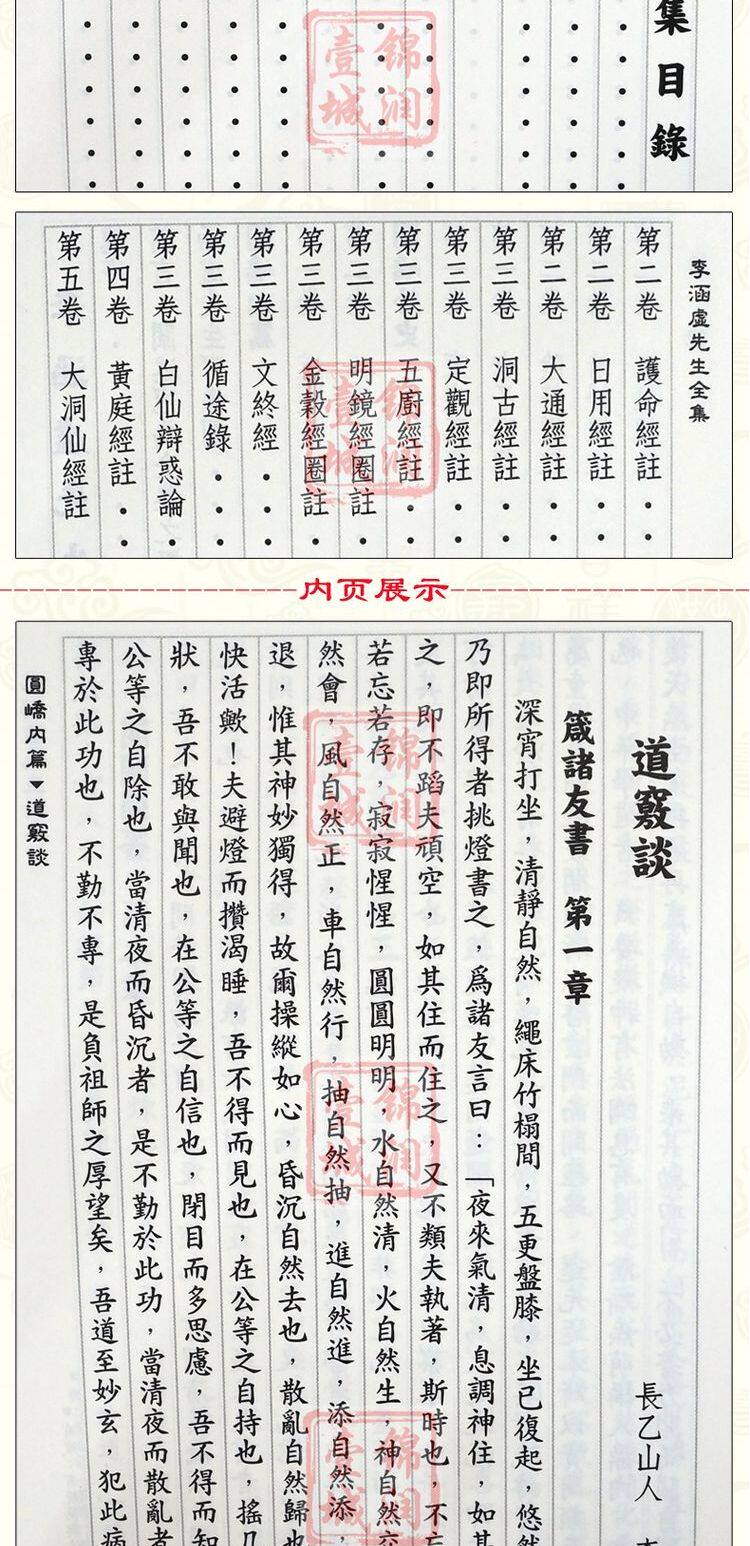 集目錄
錦润壹城
李涵虛先生全集
第二卷 護命經註‧‧
第二卷 日用經註‧‧
第二卷 大通經註‧‧
第三卷 洞古經註‧‧
第三卷 定觀經註‧‧
第三卷 五廚經註‧‧
第三卷 明鏡經圈註‧
第三卷 金穀經圈註‧
第三卷 文終經‧‧‧
第三卷 循途錄‧‧‧
第三卷 白仙辯惑論‧
第四卷 黃庭經註‧‧
第五卷 大洞仙經註
内页展示
道竅談
長乙山人
箴諸友書 第一章
深宵打坐，清靜自然，繩床竹榻間，五更盤膝，坐已復起，悠然
乃即所得者挑燈書之，爲諸友言曰：「夜來氣清，息調神住，如其
之，即不蹈夫頑空，如其住而住之，又不類夫執著，斯時也，不忘
若忘若存，寂寂惺惺，圓圓明明，水自然清，火自然生，神自然交
然會，風自然正，車自然行，抽自然抽，進自然進，添自然添，
退，惟其神妙獨得，故爾操縱如心，昏沉自然去也，散亂自然歸也
快活歟！夫避燈而攢渴睡，吾不得而見也，在公等之自持也，搖几
狀，吾不敢與聞也，在公等之自信也，閉目而多思慮，吾不得而知
公等之自除也，當清夜而昏沉者，是不勤於此功，當清夜而散亂者
專於此功也，不勤不專，是負祖師之厚望矣，吾道至妙玄，犯此病
圓嶠內篇▼道竅談